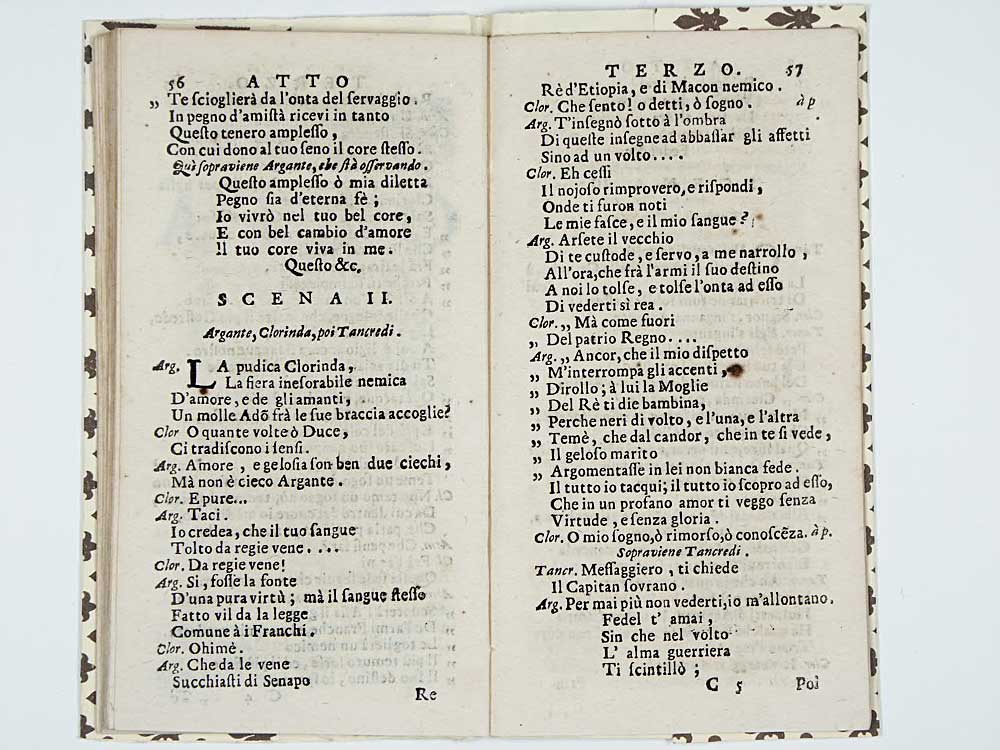 56 ATTO
„ Te scioglierà da l'onta del servaggio.
In pegno d'amistà ricevi in tanto
Questo tenero amplesso,
Con cui dono al tuo seno il core stesso.
Quì sopraviene Argante, che stà osservando.
Questo amplesso ò mia diletta
Pegno sia d'eterna fè;
Io vivrò nel tuo bel core,
E con bel cambio d'amore
Il tuo core viva in me.
Questo &c.
SCENA II.
Argante, Clorinda, poi Tancredi.
Arg. LA pudica Clorinda,
La fiera inesorabile nemica
D'amore, e de gli amanti,
Un molle Adõ frà le sue braccia accoglie?
Clor O quante volte ò Duce,
Ci tradiscono i sensi.
Arg. Amore, e gelosia son ben due ciechi,
Mà non è cieco Argante.
Clor. E pure...
Arg. Taci.
Io credea, che il tuo sangue
Tolto da regie vene....
Clor. Da regie vene!
Arg. Si, fosse la fonte
D'una pura virtù; mà il sangue stesso
Fatto vil da la legge
Comune à i Franchi.
Clor. Ohimè.
Arg. Che da le vene
Succhiasti di Senapo
Re
TERZO. 57
Rè d'Etiopia, e di Macon nemico.
Clor. Che sento! o detti, ò sogno. à p
Arg. T'insegnò sotto à l'ombra
Di queste insegne ad abbassar gli affetti
Sino ad un volto....
Clor. Eh cessi
Il nojoso rimprovero, e rispondi,
Onde ti furon noti
Le mie fasce, e il mio sangue?
Arg. Arsete il vecchio
Di te custode, e servo, a me narrollo,
All'ora, che frà l'armi il suo destino
A noi lo tolse, e tolse l'onta ad esso
Di vederti sì rea.
Clor. „ Mà come fuori
„ Del patrio Regno....
Arg. „ Ancor, che il mio dispetto
„ M'interrompa gli accenti,
„ Dirollo; à lui la Moglie
„ Del Rè ti die bambina,
„ Perche neri di volto, e l'una, e l'altra
„ Temè, che dal candor, che in te si vede,
„ Il geloso marito
„ Argomentasse in lei non bianca fede.
Il tutto io tacqui; il tutto io scopro ad esso,
Che in un profano amor ti veggo senza
Virtude, e senza gloria.
Clor. O mio sogno, ò rimorso, ò conoscẽza. à p.
Sopraviene Tancredi.
Tancr. Messaggiero, ti chiede
Il Capitan sovrano.
Arg. Per mai più non vederti, io m'allontano.
Fedel t' amai,
Sin che nel volto
L' alma guerriera
Ti scintillò;
C 5 Poi